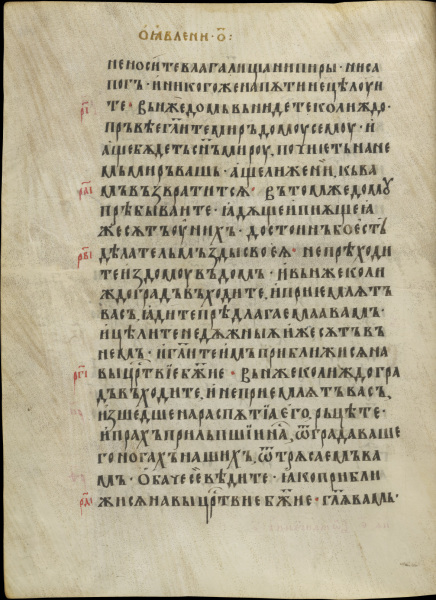 ѡ҆ ꙗ҆вленн · о҃ :
не носи́те влагалища ни пиры · ни са
погъ · и҆ никогоже на пѫти не цѣлоуи
те · вьнѫ́же домъ вьнидете колиждо ·
пръвѣе гл҃ите миръ домоу семоу · и҆
а҆ще бѫдеть сн҃ъ мироу, почиеть на не
мь миръ вашь · а҆ще ли же ни, къ ва
мъ възвратитсѧ · въ том же домꙋ
прѣбываите · ꙗ҆дѫще и҆ пиѫще ꙗ҆
же сѫтъ ѹ҆ нихъ · достоинъ бо естъ
дѣлатель мъзды своеѧ · не прѣходи
те из домоу въ домъ · и҆ вьнже коли
ждо градъ въходите, и҆ приемлѧтъ
васъ, ꙗ҆дите прѣдлагаемаа вамъ ·
и҆ цѣлите недѫжныѧ и҆же сѫтъ въ
немъ · и҆ гл҃ите имъ приближисѧ на
вы црⷭ҇твїе бж҃ие · вьнже колиждо гра
дъ въходите, и҆ не приемлѧтъ васъ,
и҆зшедше на распѫтїа его, рьцѣте ·
и҆ прахъ прильпшїи на, ѿ града ваше
го ногахъ нашихъ, ѿтрѧсаемъ ва
мъ · ѡ҆баче се вѣдите · ꙗ҆ко прибли
жисѧ на вы црⷭ҇твие бж҃ие · гл҃ѧ вамъ ·